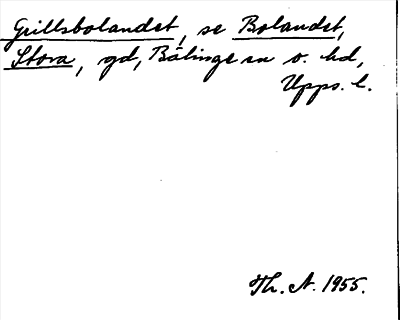 Grillsbolandet, se Bolandet,
Stora, gd, Bälinge sn o. hd,
Upps. l.
Th. A. 1955.